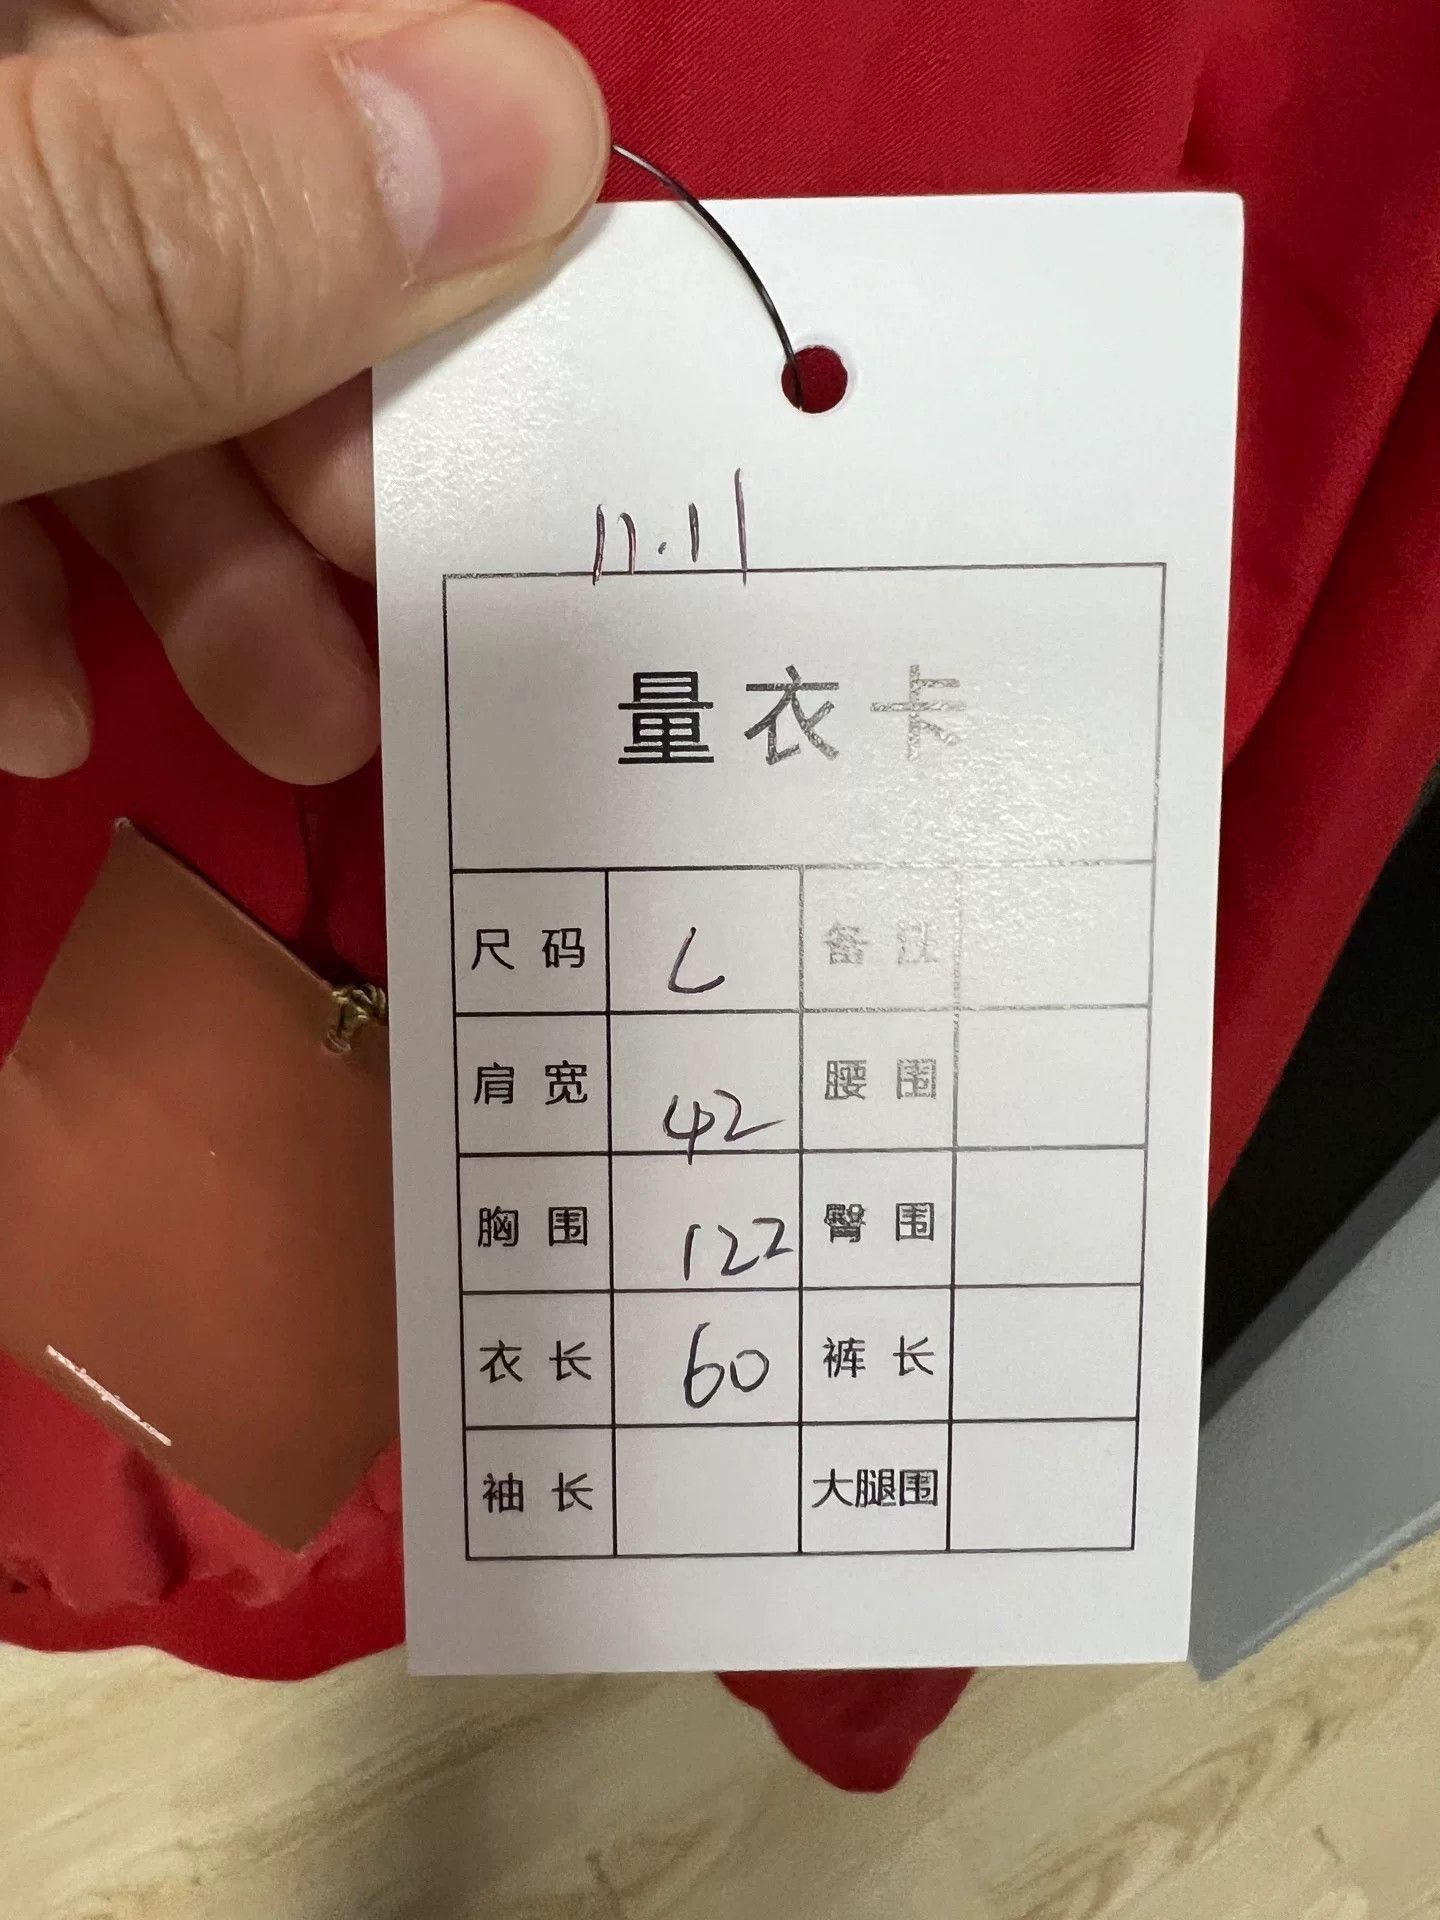 11.11
量衣卡
尺码 L 备注
肩宽 42 腰围
胸围 122 臀围
衣长 60 裤长
袖长 大腿围